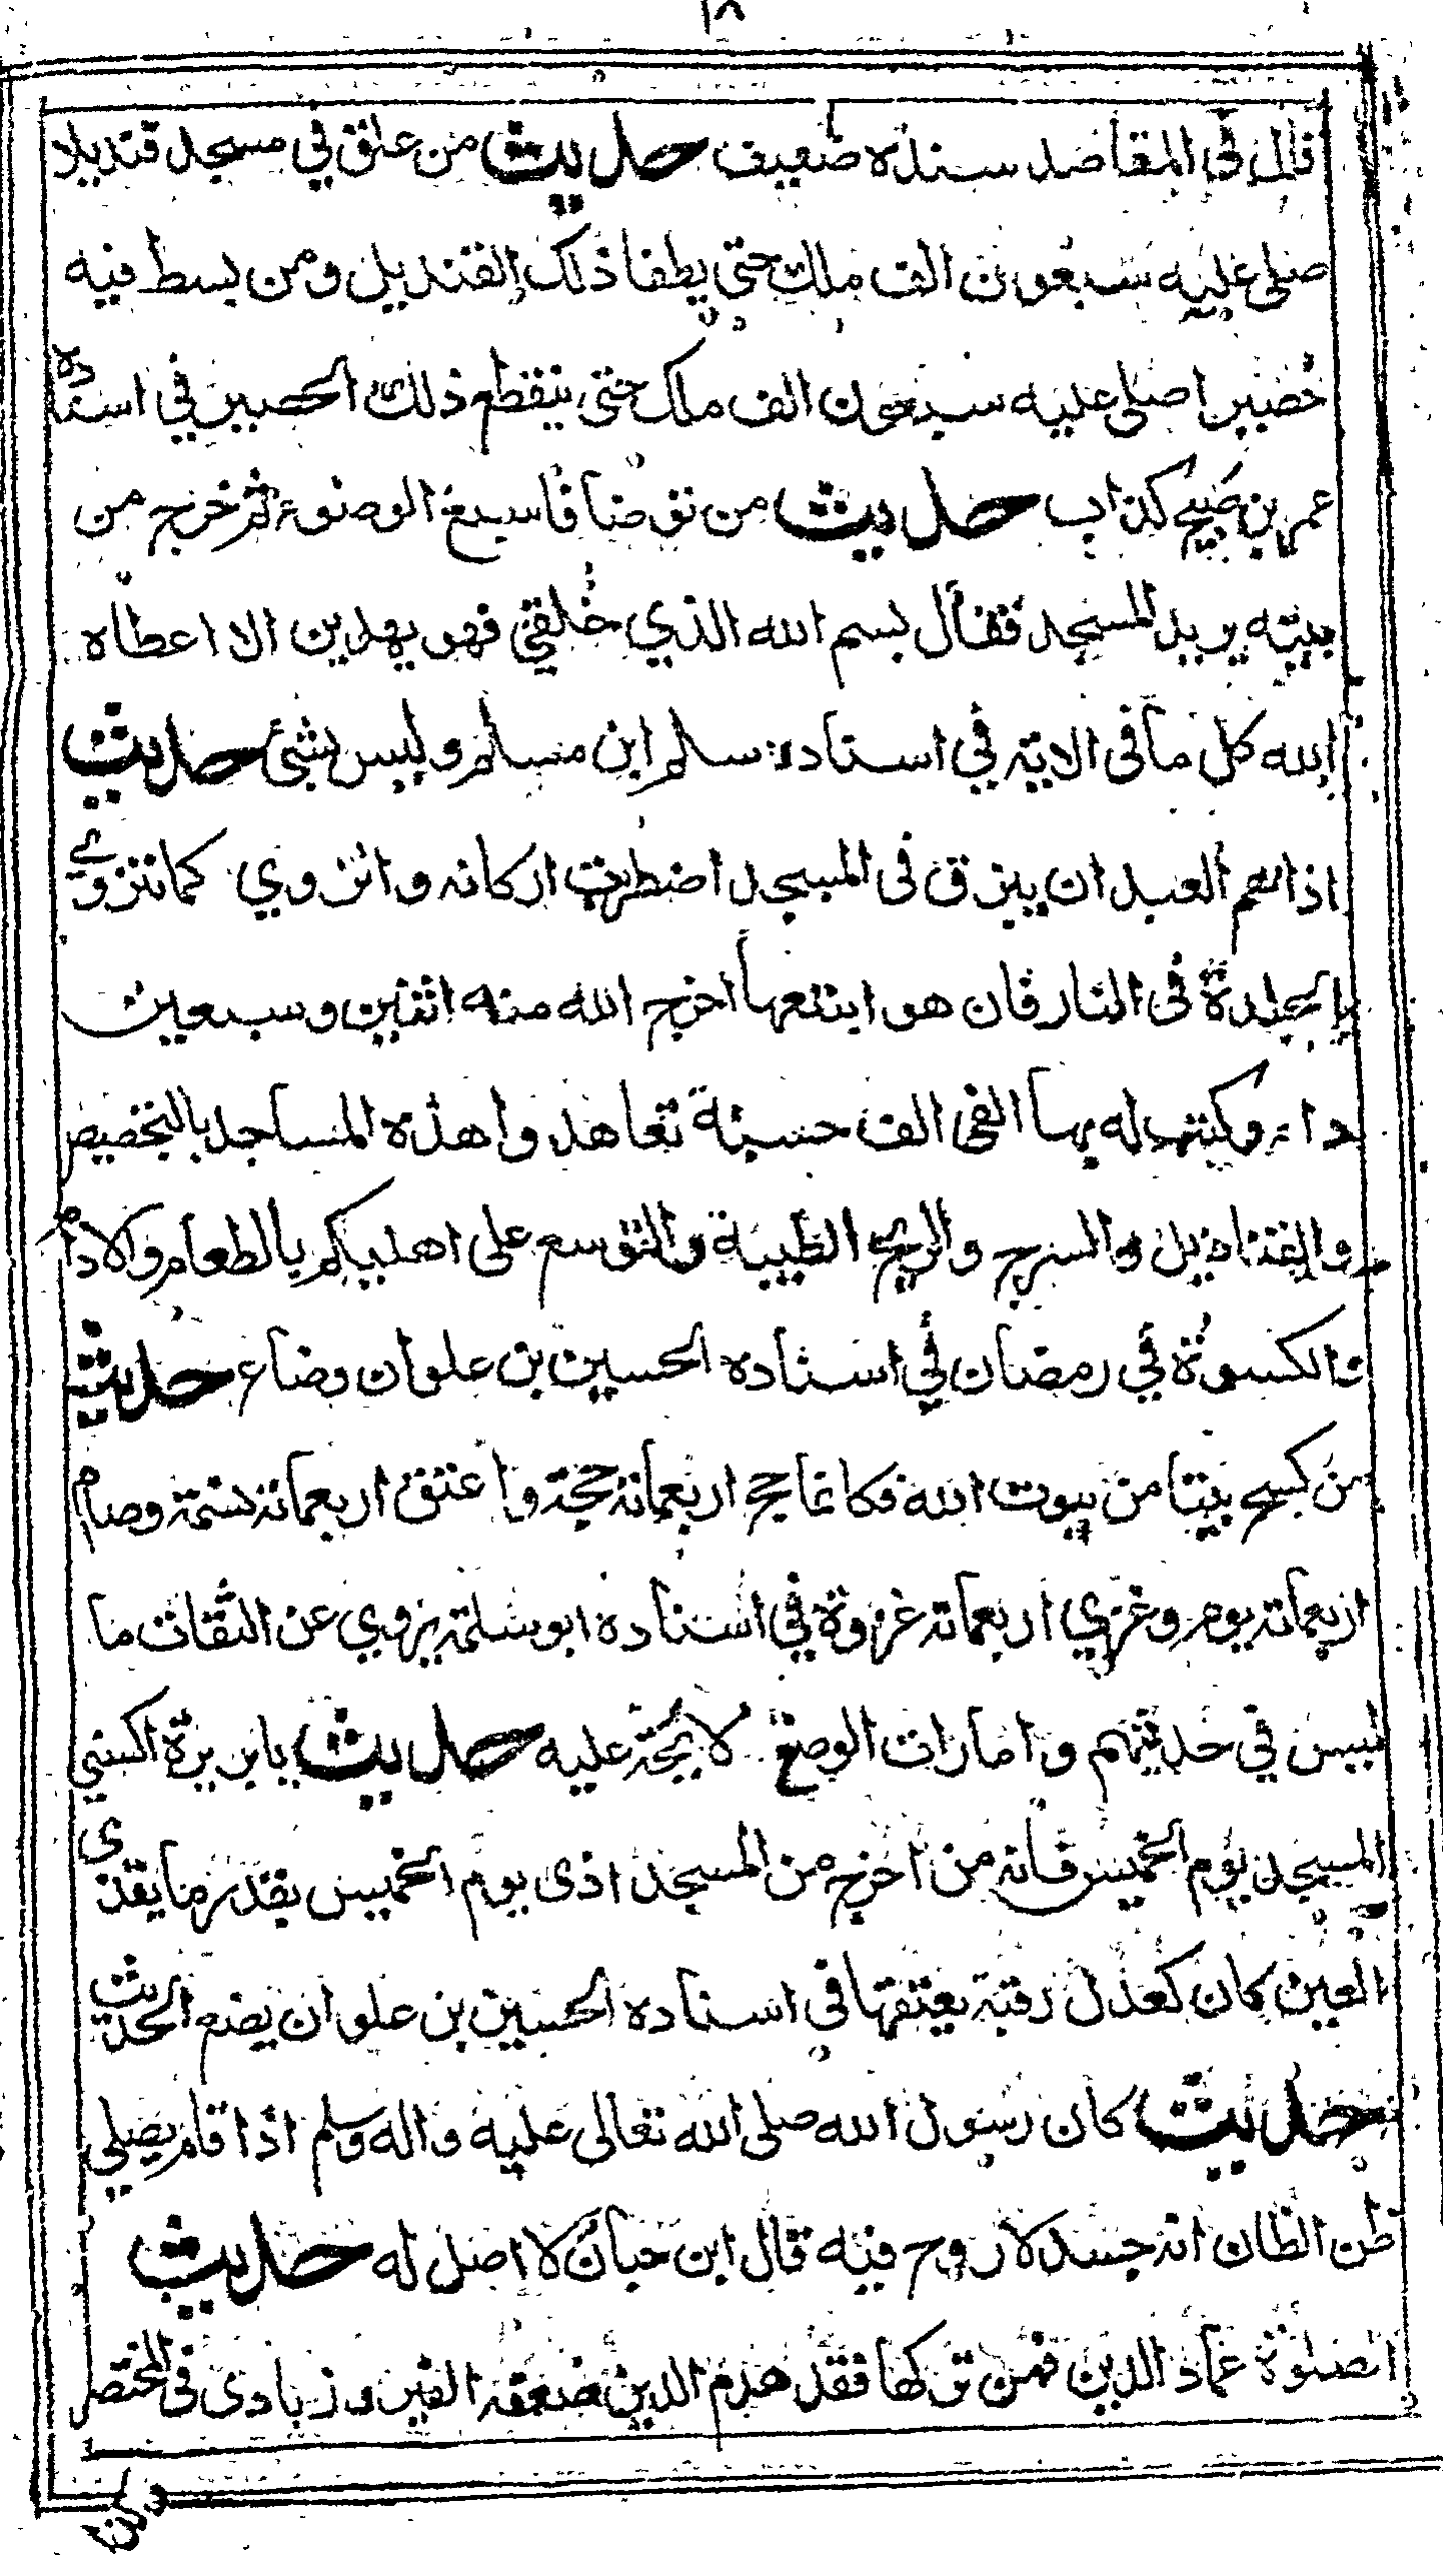 ١٨
قال في المقاصد سنده ضعيف حديث من علق في مسجد قنديلا
صلى عليه سبعون الف ملك حتى يطفا ذلك القنديل ومن بسط فيه
حصيرا صلى عليه سبعون الف ملك حتى ينقطع ذلك الحصير في اسناده
عمر بن صبيح كذاب حديث من توضا فاسبغ الوضوء ثم خرج من
بيته يريد المسجد فقال بسم الله الذي خلقني فهو يهدين الا اعطاه
الله كل ما في الاية في اسناده سلم ابن مسالم وليس بشئ حديث
اذا هم العبد ان يبزق في المسجد اضطربت اركانه وانزوي كما تنزوي
الجلدة في النار فان هو ابتلعها اخرج الله منه اثنين وسبعين
داء وكتب له بها الفي الف حسنة تعاهدوا هذه المساجد بالتجصيص
والقناديل والسرج والريح الطيبة والتوسع على اهليكم بالطعام والادام
والكسوة في رمضان في اسناده الحسين بن علوان وضاع حديث
من كسح بيتا من بيوت الله فكانما حج اربعمائة حجة واعتق اربعمائة نسمة وصام
اربعمائة يوم وغزي اربعمائة غزوة في اسناده ابو سلمة يروي عن الثقات ما
ليس في حديثهم وامارات الوضع لايحة عليه حديث يابريرة اكنسي
المسجد يوم الخميس فانه من اخرج من المسجد اذى يوم الخميس بقدر ما يقذى
العين كان كعدل رقبة يعتقها في اسناده الحسين بن علوان يضع الحديث
حديث كان رسول الله صلى الله تعالى عليه واله وسلم اذا قام يصلي
ظن الظان انه جسد لا روح فيه قال ابن حبان لا اصل له حديث
الصلوة عماد الدين فمن تركها فقد هدم الدين ضعفه الفيروزبادى في المختصر